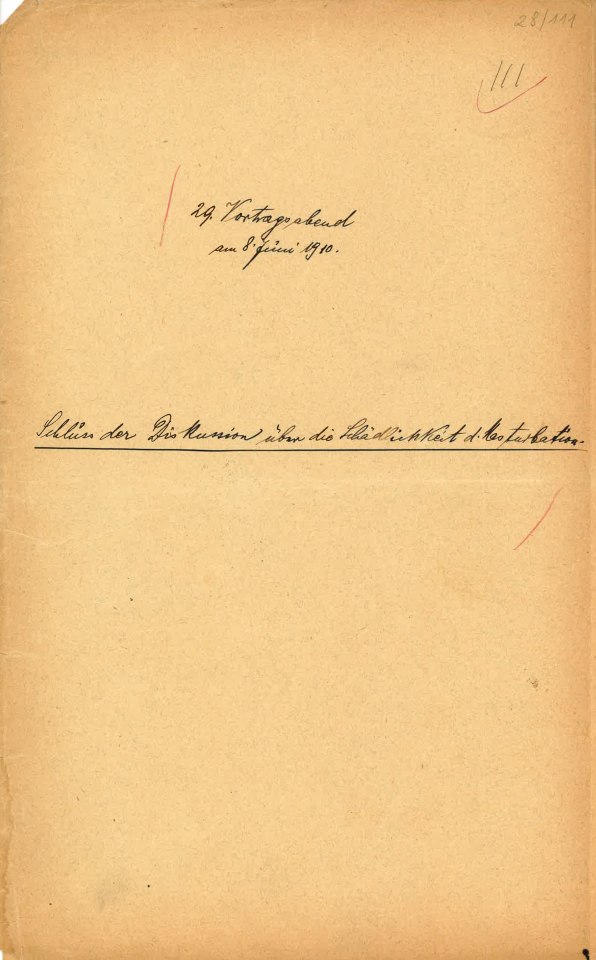 28/111
111
29. Vortragsabend
am 8. Juni 1910.
Schluss der Diskussion über die Schädlichkeit d. Masturbation.